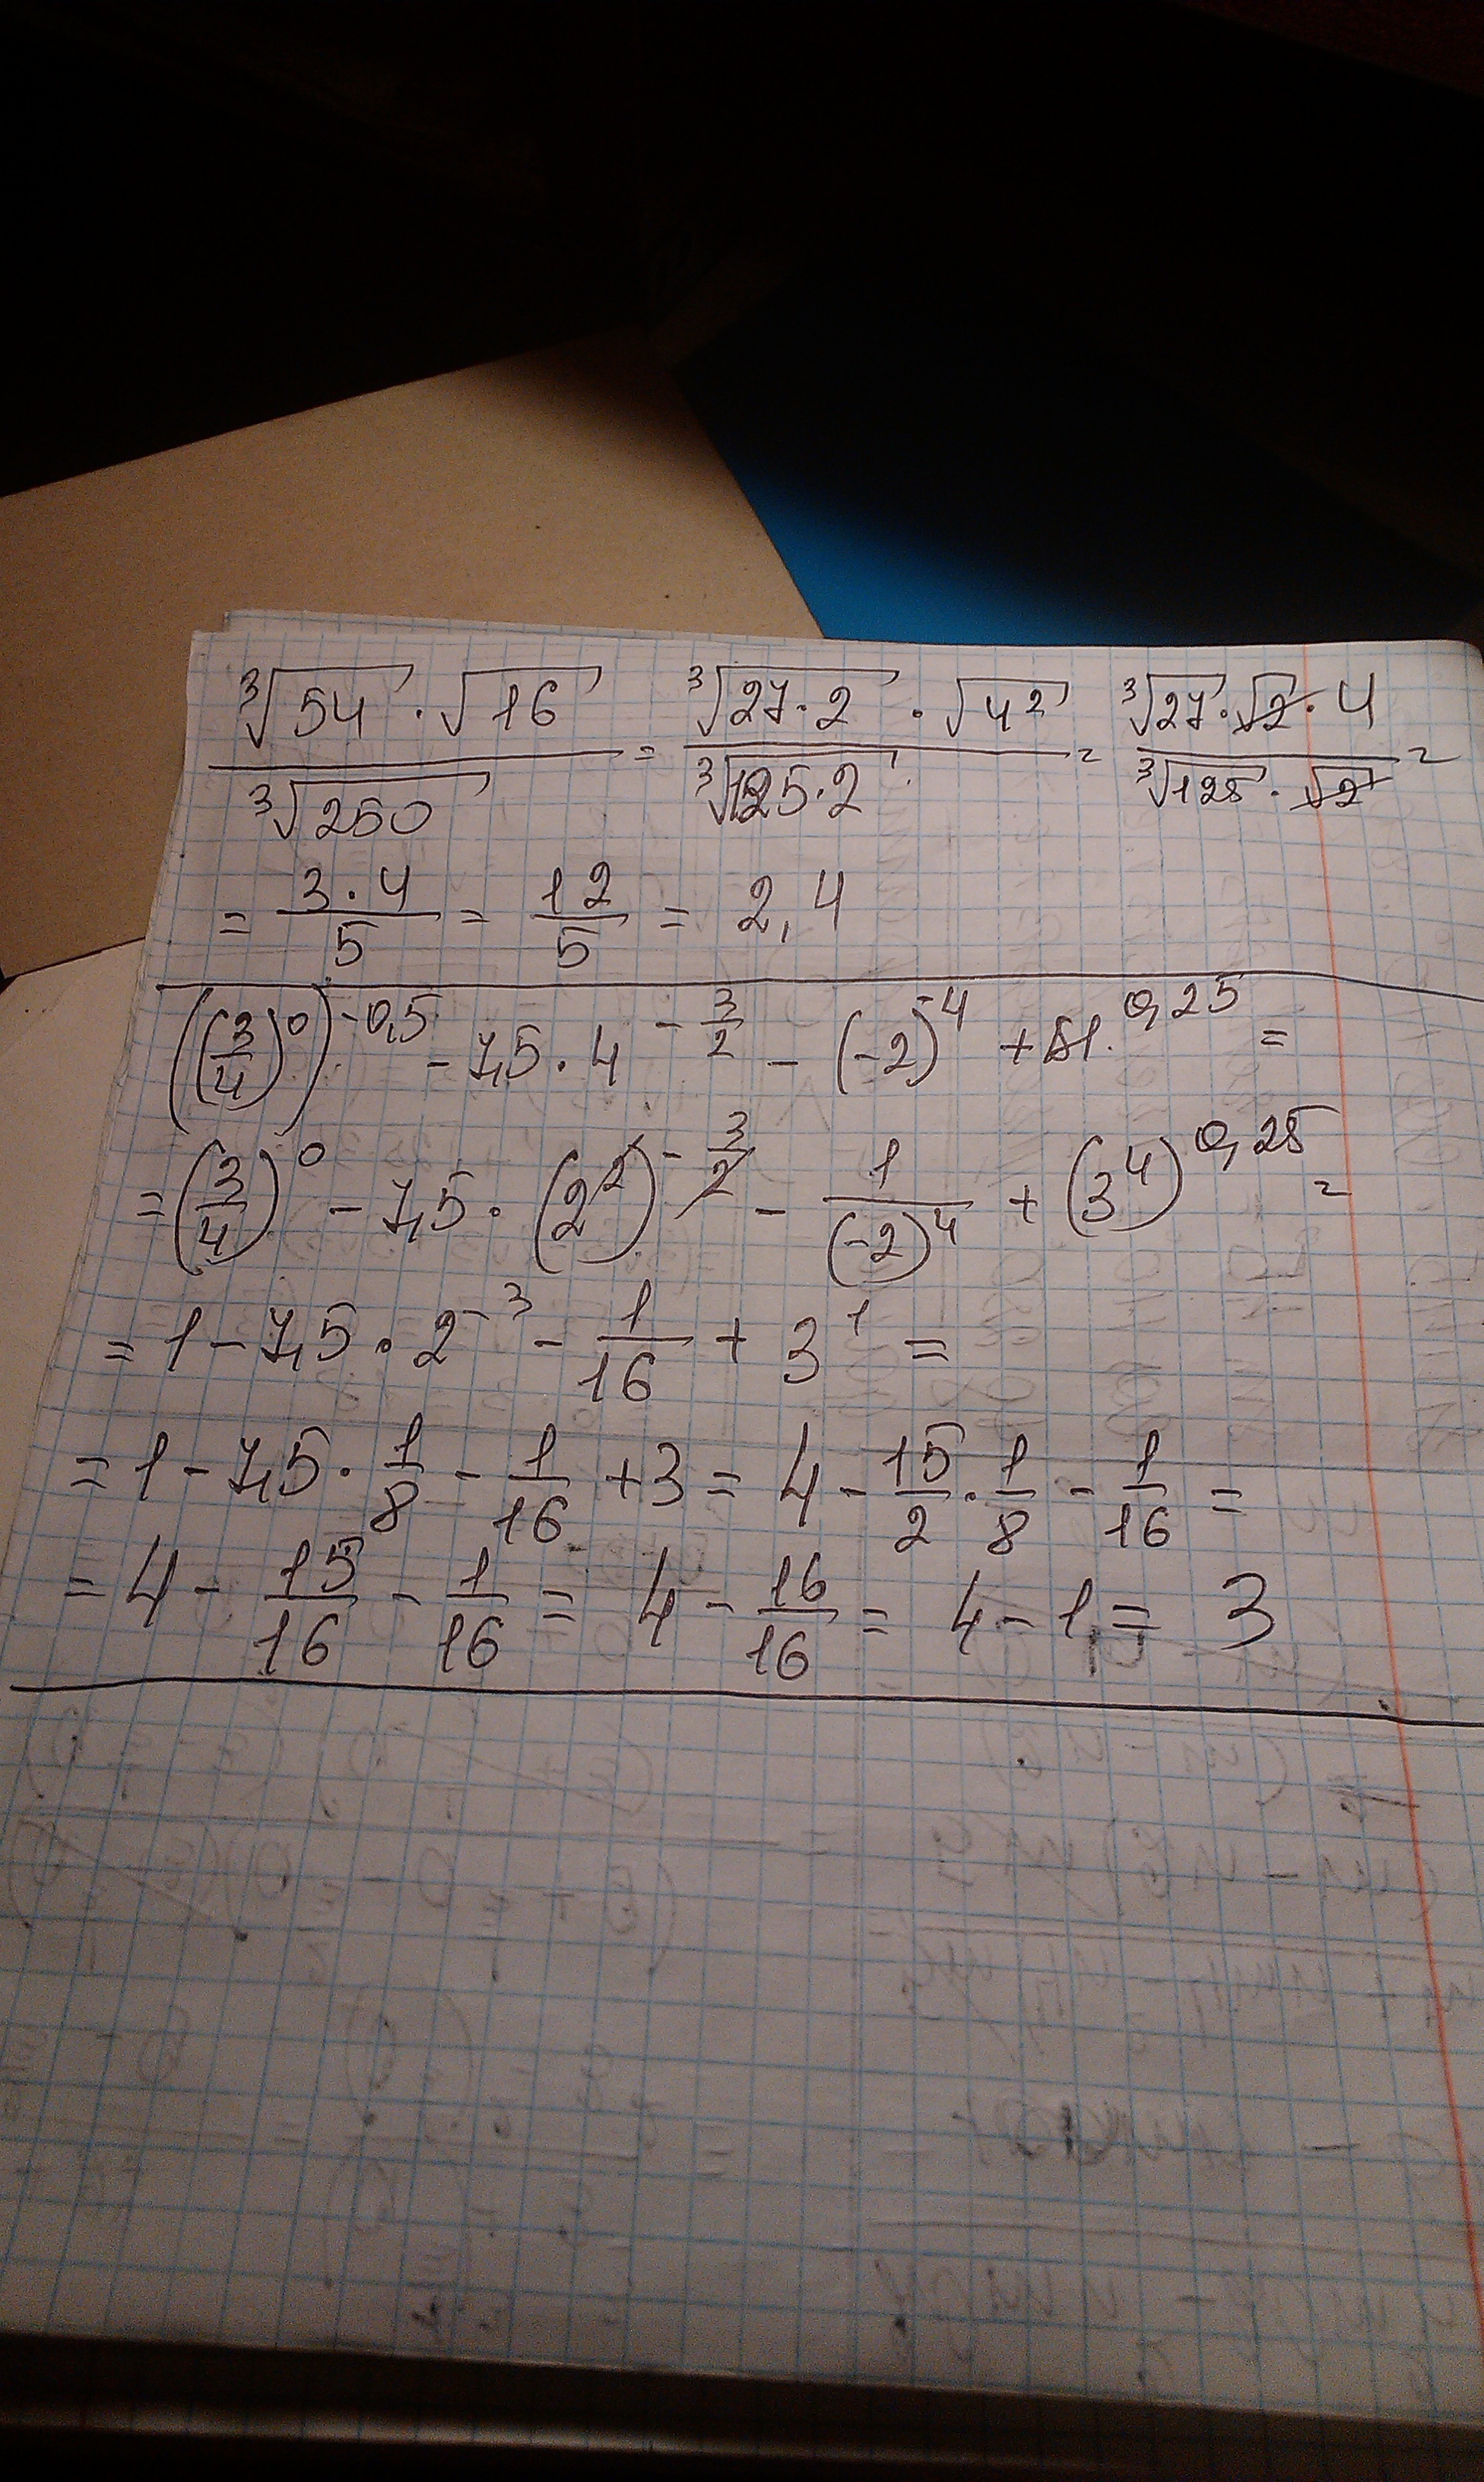 ∛54 · √16 / ∛250 = ∛27·2 · √4² / ∛125·2 = ∛27 · √2 · 4 / ∛125 · √2 =
= 3·4/5 = 12/5 = 2,4
((3/4)⁰)^-0,5 - 7,5 · 4^-3/2 - (-2)^-4 + 81^0,25 =
= (3/4)⁰ - 7,5 · (2²)^-3/2 - 1/(-2)⁴ + (3⁴)^0,25 =
= 1 - 7,5 · 2^-3 - 1/16 + 3¹ =
= 1 - 7,5 · 1/8 - 1/16 + 3 = 4 - 15/2 · 1/8 - 1/16 =
= 4 - 15/16 - 1/16 = 4 - 16/16 = 4 - 1 = 3